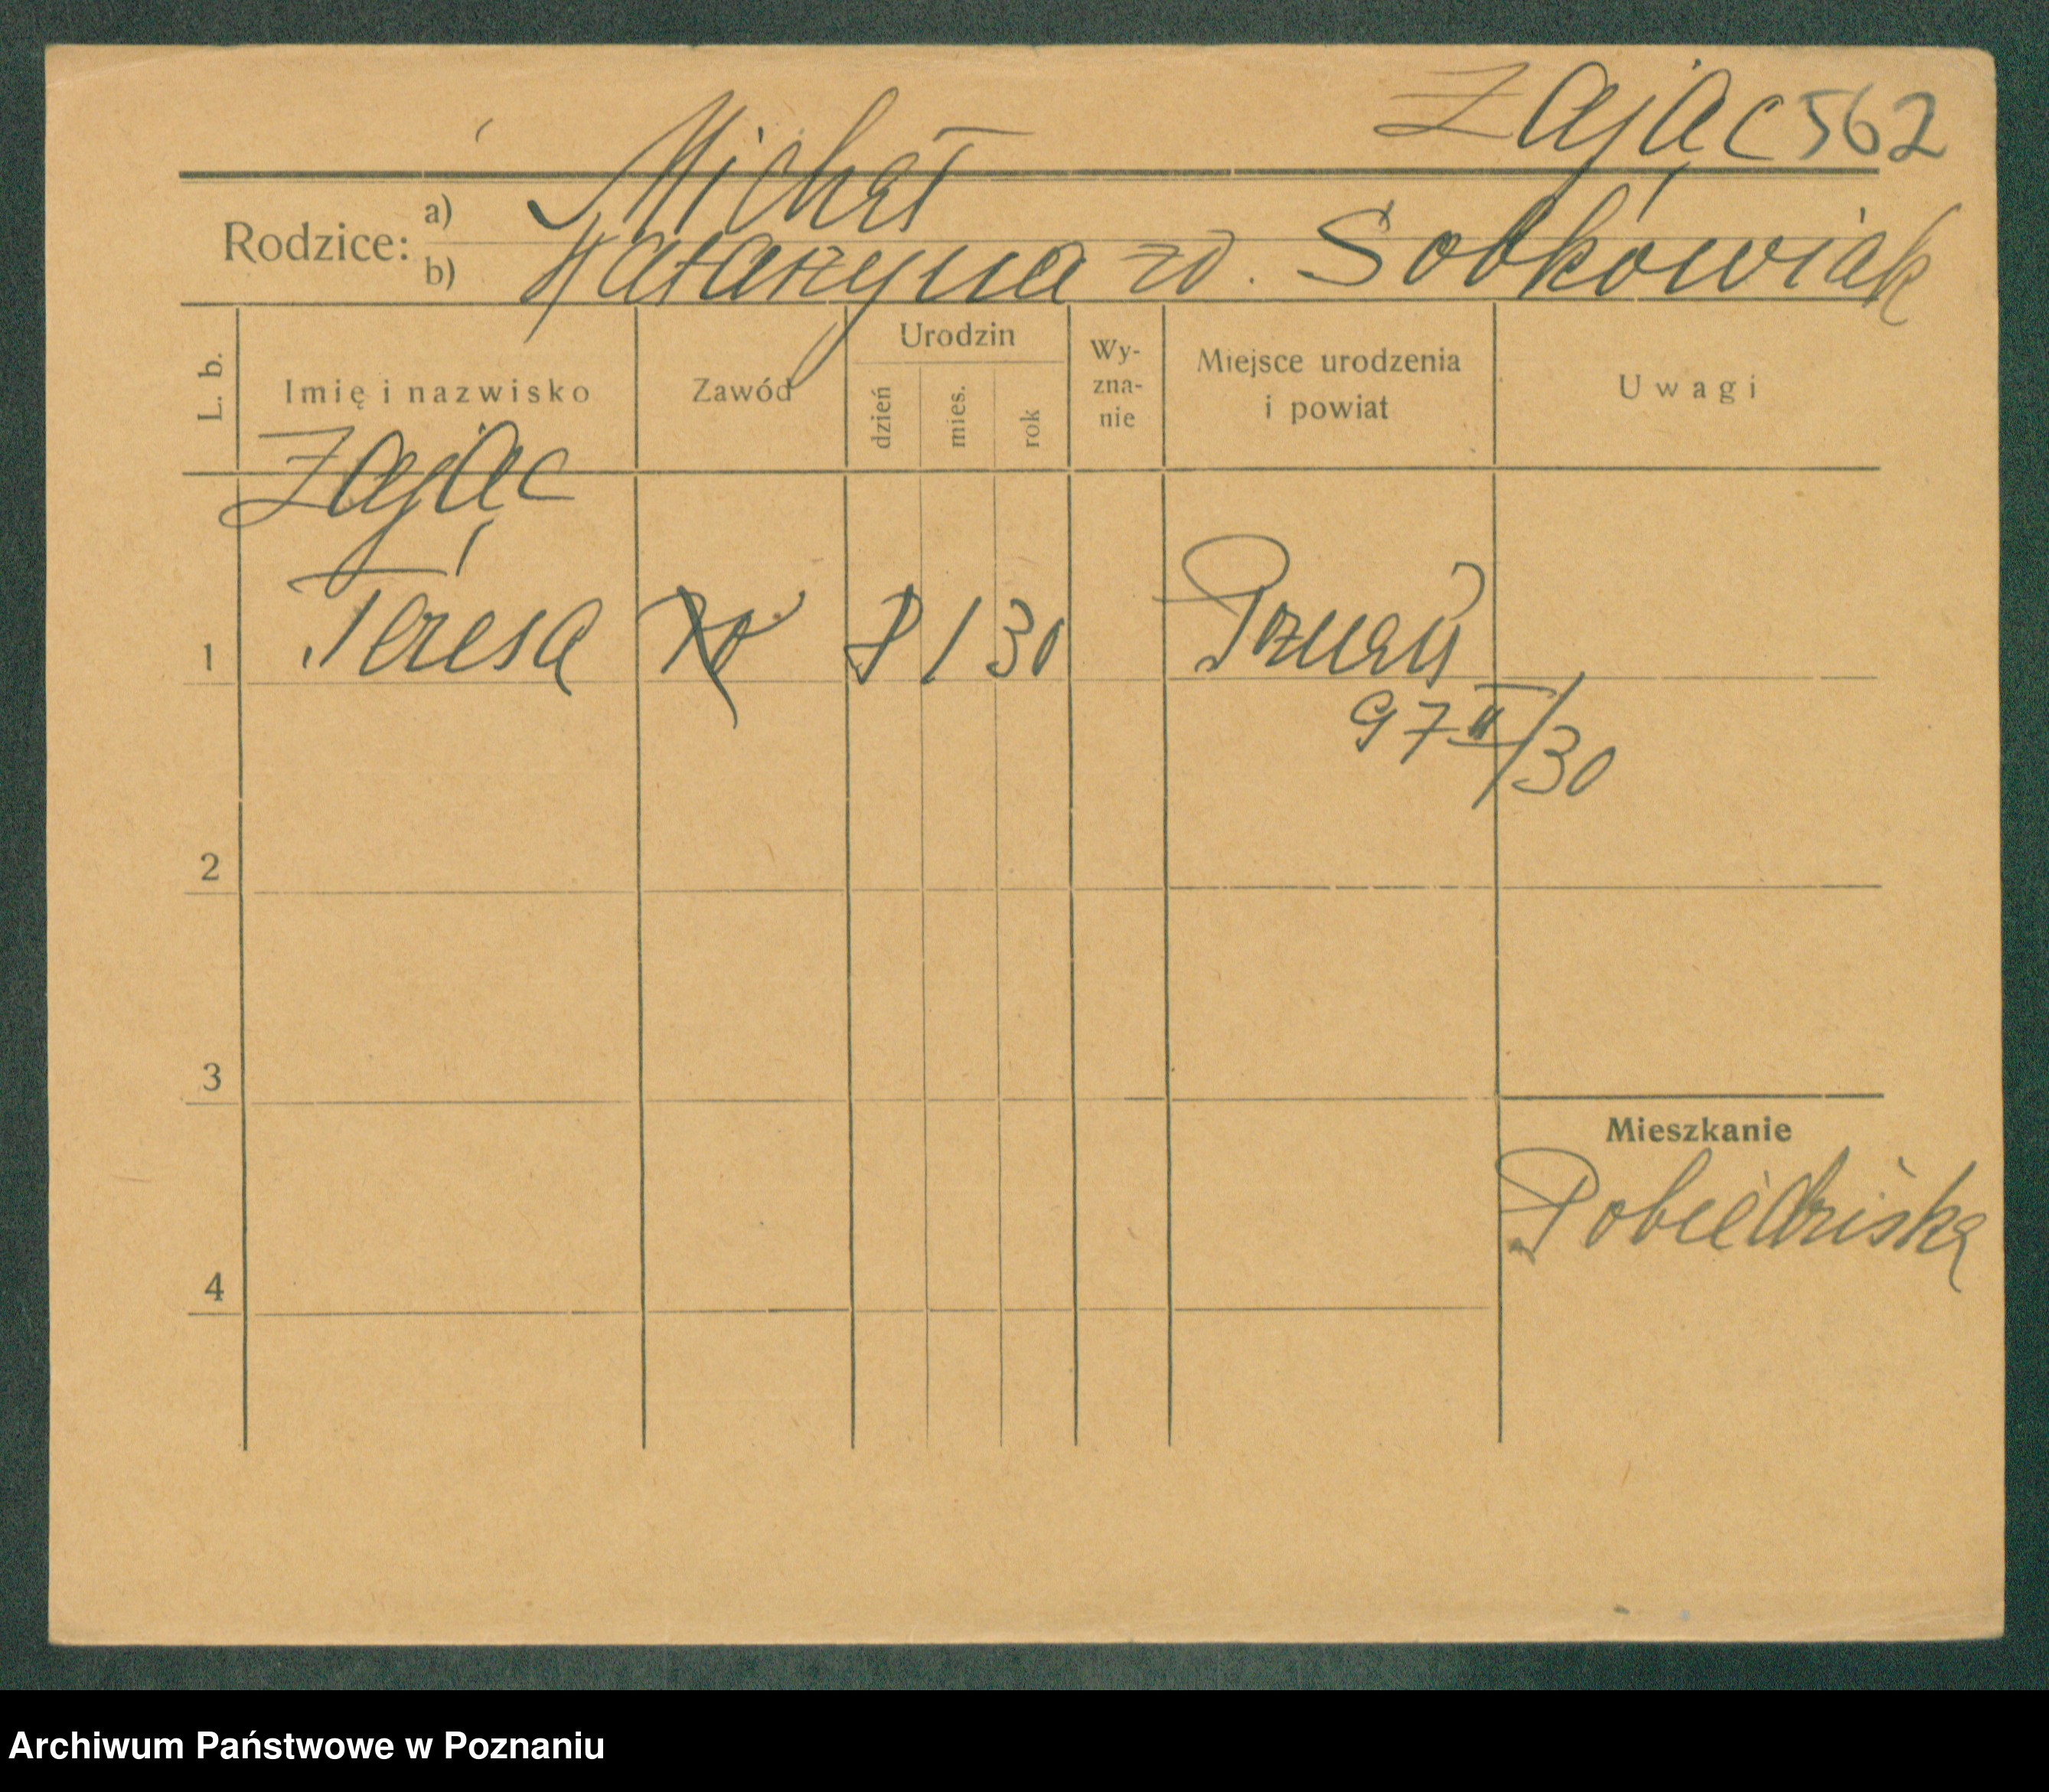 Zając 562
Rodzice: a) Michał
b) Katarzyna zd. Sobkowiak
L. b. Imię i nazwisko Zawód Urodzin dzień mies. rok Wy-zna-nie Miejsce urodzenia i powiat Uwagi
Zając
1 Teresa 1 30 Poznań
97 II/30
2
3
Mieszkanie
Pobiedziska
4
Archiwum Państwowe w Poznaniu